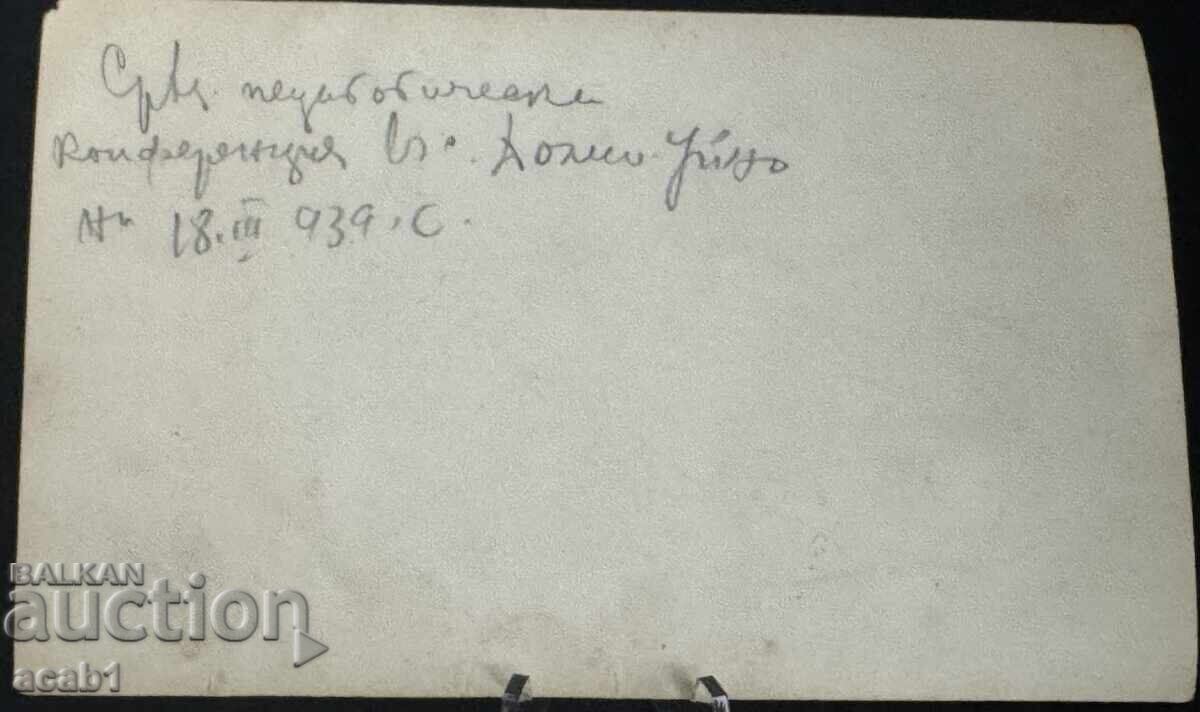 Сръд. педагогическа
конференция въ с. Долно Уйно
На 18.III 939. С.
BALKAN
auction
acab1